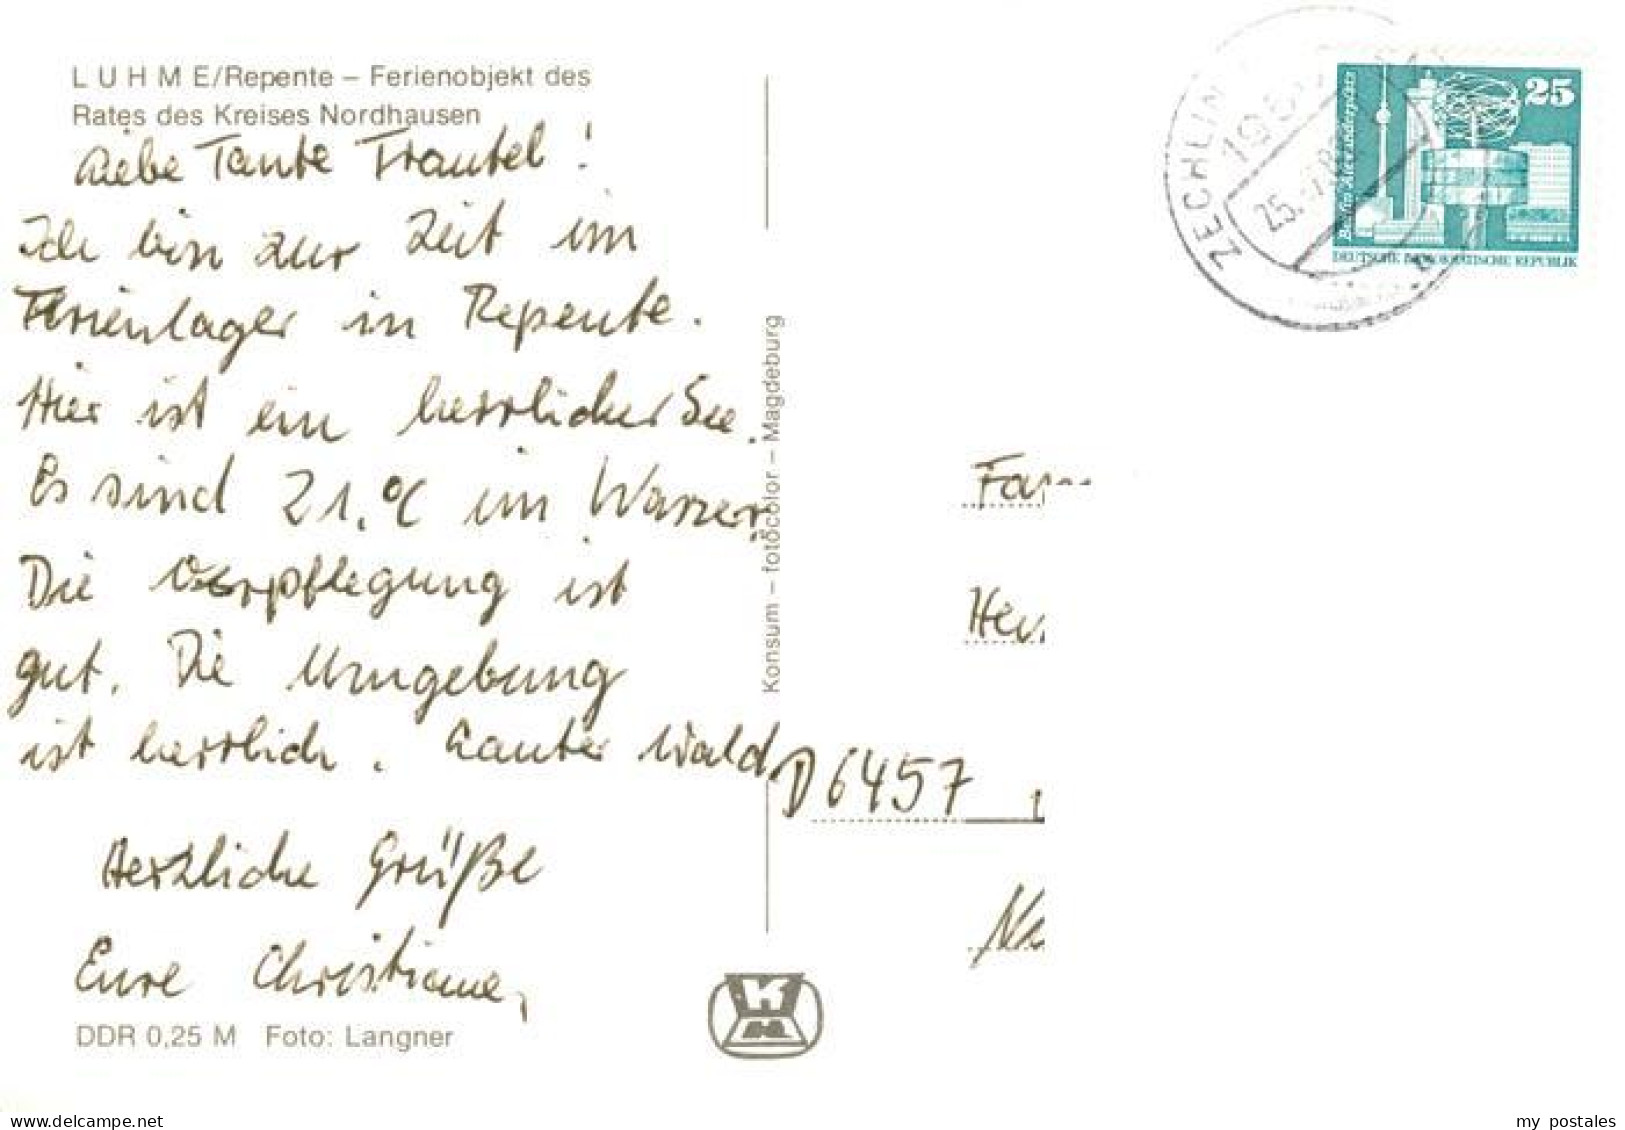 L U H M E/Repente – Ferienobjekt des
Rates des Kreises Nordhausen
Liebe Tante Trautel!
Ich bin zur Zeit im
Ferienlager in Repente.
Hier ist ein herrlicher See.
Es sind 21.°C im Wasser.
Die Verpflegung ist
gut. Die Umgebung
ist herrlich. Lauter Wald.
Herzliche Grüße
Eure Christiane,
DDR 0,25 M Foto: Langner
Konsum – fotocolor – Magdeburg
K
ZECHLIN
195
25.
25
Berlin Alexanderplatz
DEUTSCHE DEMOKRATISCHE REPUBLIK
Fam
D 6457
www.delcampe.net
my_postales